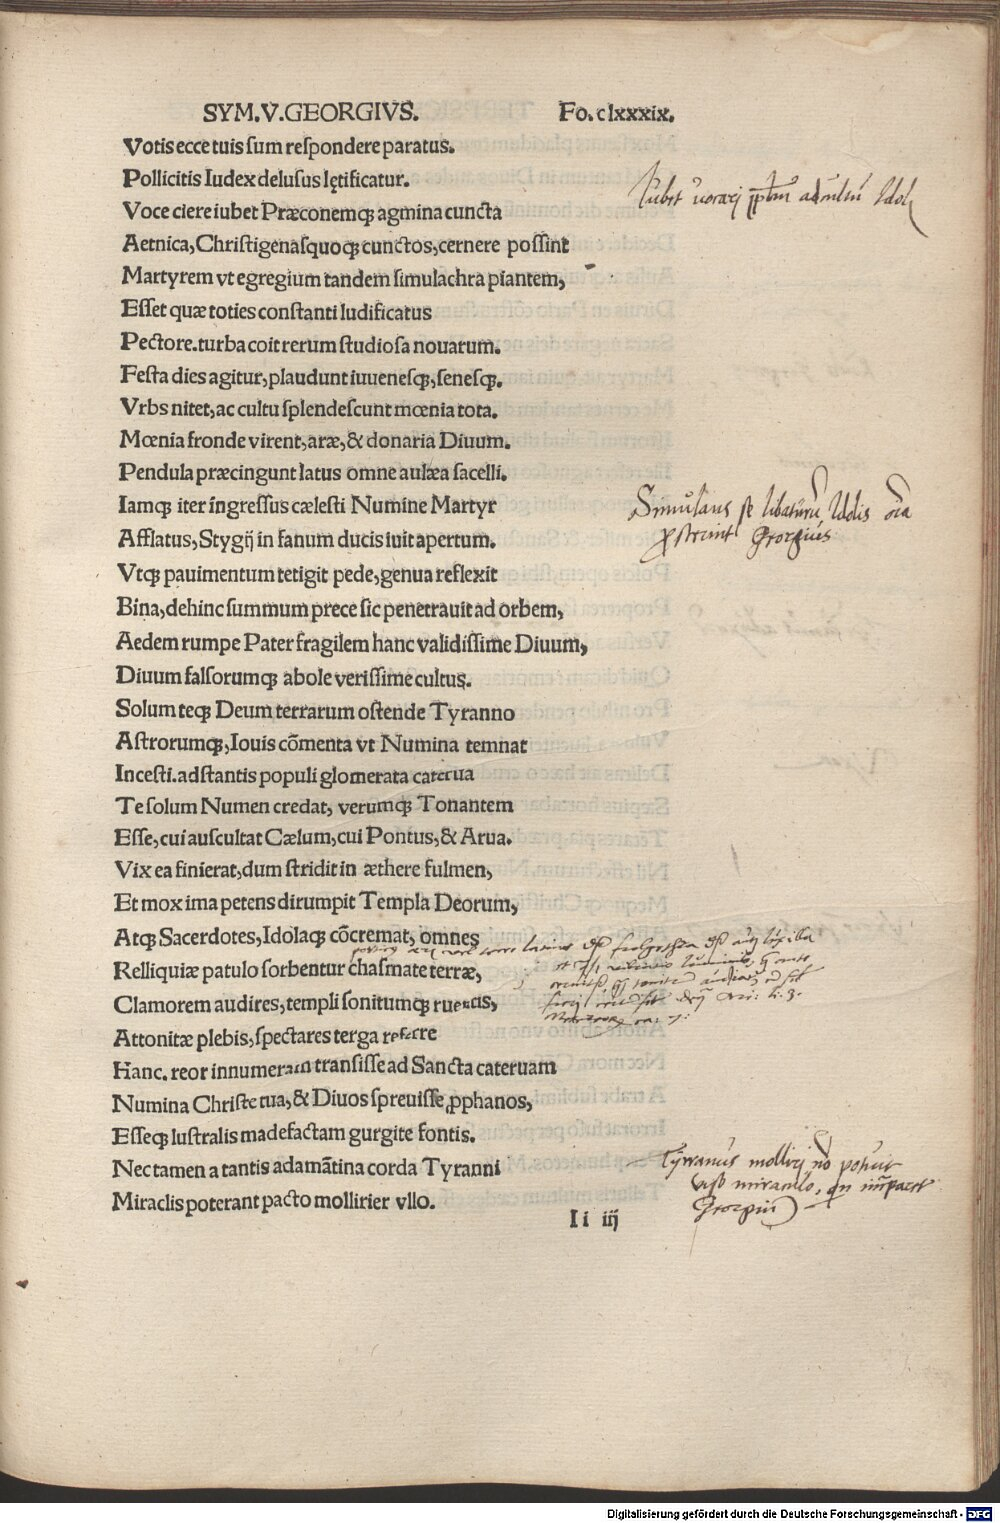 SYM.V.GEORGIVS. Fo.clxxxix.
Votis ecce tuis sum respondere paratus.
Pollicitis Iudex delusus lętificatur.
Voce ciere iubet Præconemqꝫ agmina cuncta
Aetnica, Christigenasquoqꝫ cunctos, cernere possint
Martyrem vt egregium tandem simulachra piantem,
Esset quæ toties constanti ludificatus
Pectore. turba coit rerum studiosa nouarum.
Festa dies agitur, plaudunt iuuenesqꝫ, senesqꝫ.
Vrbs nitet, ac cultu splendescunt mœnia tota.
Mœnia fronde virent, aræ, & donaria Diuum.
Pendula præcingunt latus omne aulæa sacelli.
Iamqꝫ iter ingressus cælesti Numine Martyr
Afflatus, Stygij in fanum ducis iuit apertum.
Vtqꝫ pauimentum tetigit pede, genua reflexit
Bina, dehinc summum prece sic penetrauit ad orbem,
Aedem rumpe Pater fragilem hanc validissime Diuum,
Diuum falsorumqꝫ abole verissime cultus.
Solum teqꝫ Deum terrarum ostende Tyranno
Astrorumqꝫ, Iouis cōmenta vt Numina temnat
Incesti. adstantis populi glomerata caterua
Te solum Numen credat, verumqꝫ Tonantem
Esse, cui auscultat Cælum, cui Pontus, & Arua.
Vix ea finierat, dum stridit in æthere fulmen,
Et mox ima petens dirumpit Templa Deorum,
Atqꝫ Sacerdotes, Idolaqꝫ cōcremat, omnes
Relliquiæ patulo sorbentur chasmate terræ,
Clamorem audires, templi sonitumqꝫ ruentis,
Attonitæ plebis, spectares terga referre
Hanc. reor innumeram transisse ad Sancta cateruam
Numina Christe tua, & Diuos spreuisse ꝓphanos,
Esseqꝫ lustralis madefactam gurgite fontis.
Nec tamen a tantis adamātina corda Tyranni
Miraclis poterant pacto mollirier vllo.
Ii iij
Iubet
Simulans se libaturū Idolis oīa
Georgius
Tyrranus molliri nō potuit
viso miraculo,
Georgiū
Digitalisierung gefördert durch die Deutsche Forschungsgemeinschaft - DFG